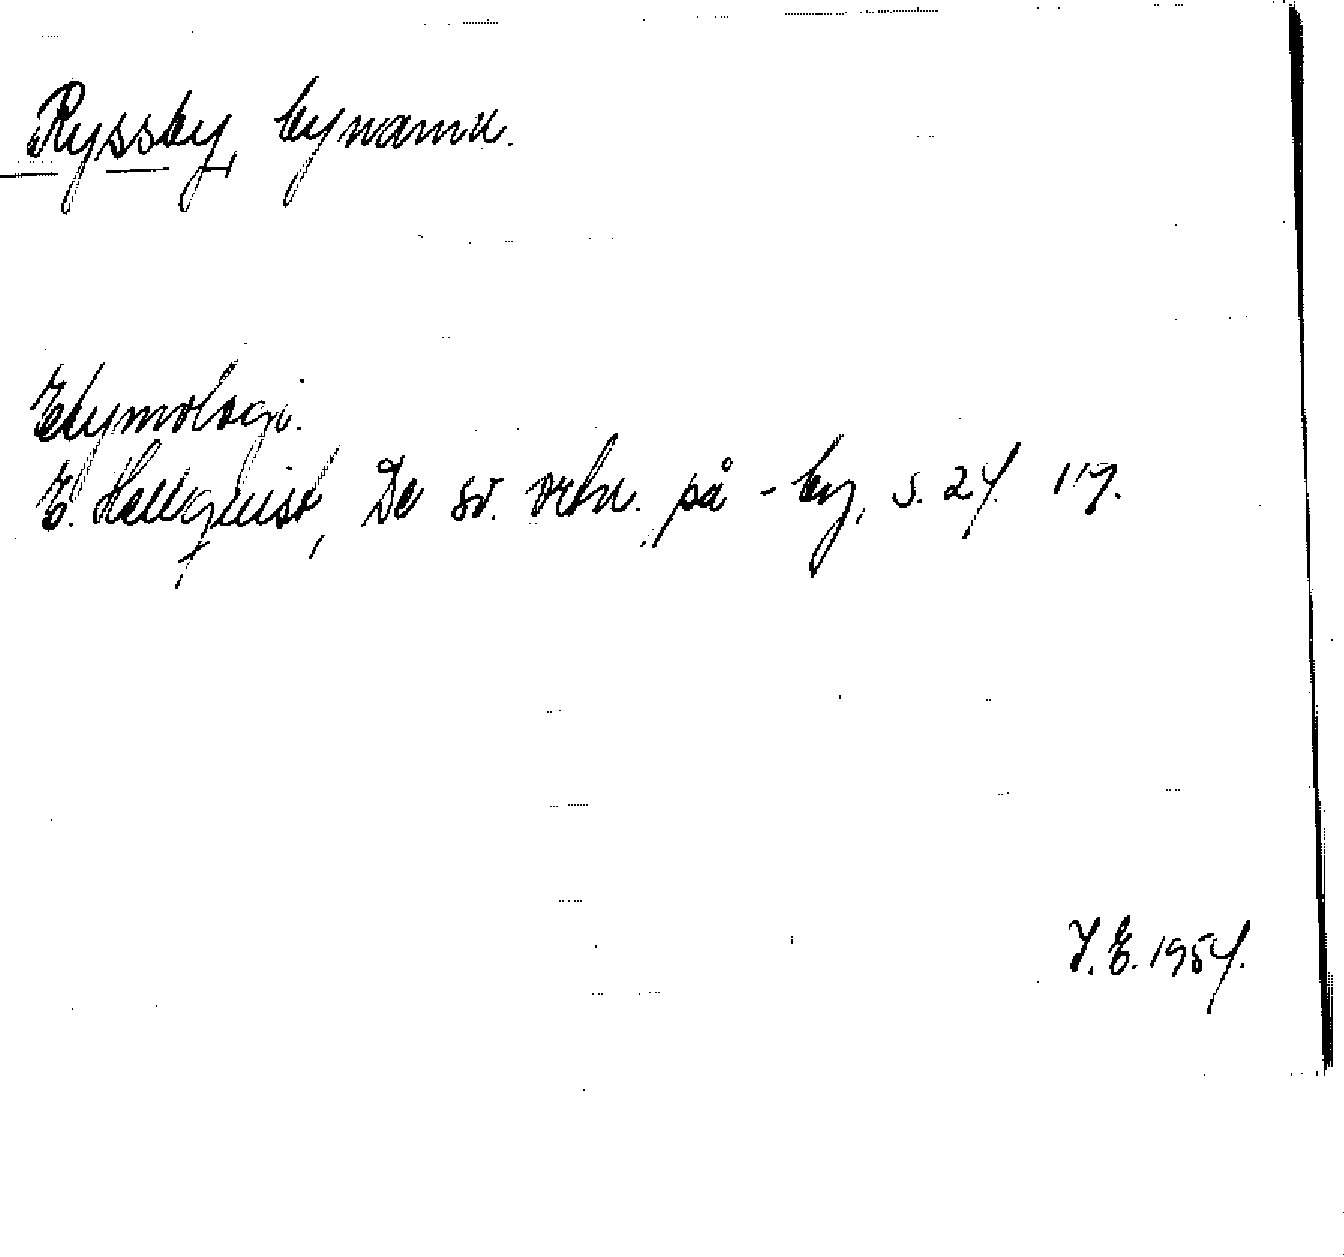 Ryssby, bynamn.
Etymologi.
E. Hellquist, De sv. ortn. på -by, s. 24. 119.
J. E. 1954.